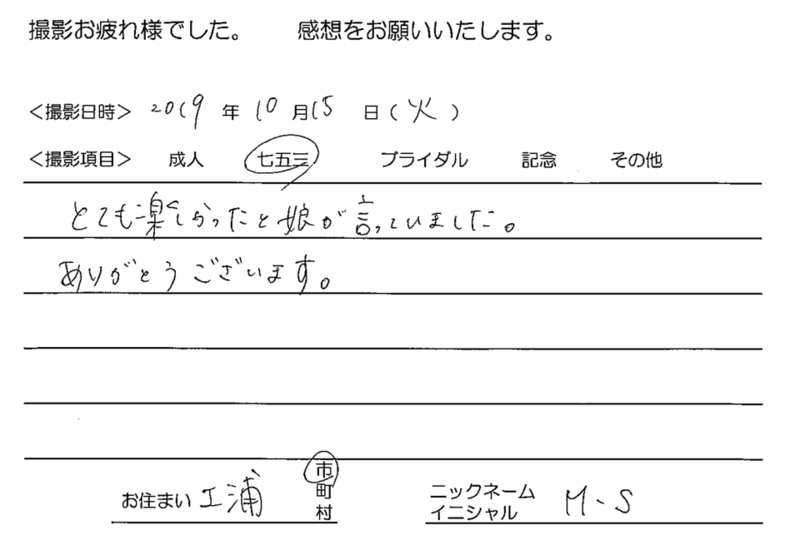 撮影お疲れ様でした。　　感想をお願いいたします。
<撮影日時> 2019 年 10 月 15 日 (火)
<撮影項目>　成人　七五三　ブライダル　記念　その他
とても楽しかったと娘が言っていました。
ありがとうございます。
お住まい 工浦 市 町 村　ニックネーム イニシャル M・S